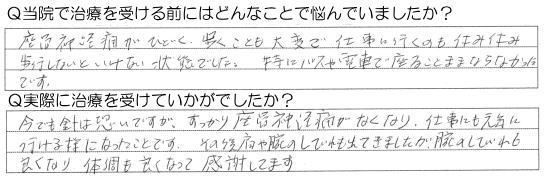 Q当院で治療を受ける前にはどんなことで悩んでいましたか？
座骨神経痛がひどく、歩くことも大変で仕事に行くのも休み休み
歩行しないといけない状態でした。特にバスや電車で座ることままならなかった
です。
Q実際に治療を受けていかがでしたか？
今でも針は恐いですが、すっかり座骨神経痛がなくなり、仕事にも元気に
行ける様になったことです。その後肩や腕のしびれも出てきましたが腕のしびれも
良くなり 体調も良くなって 感謝してます